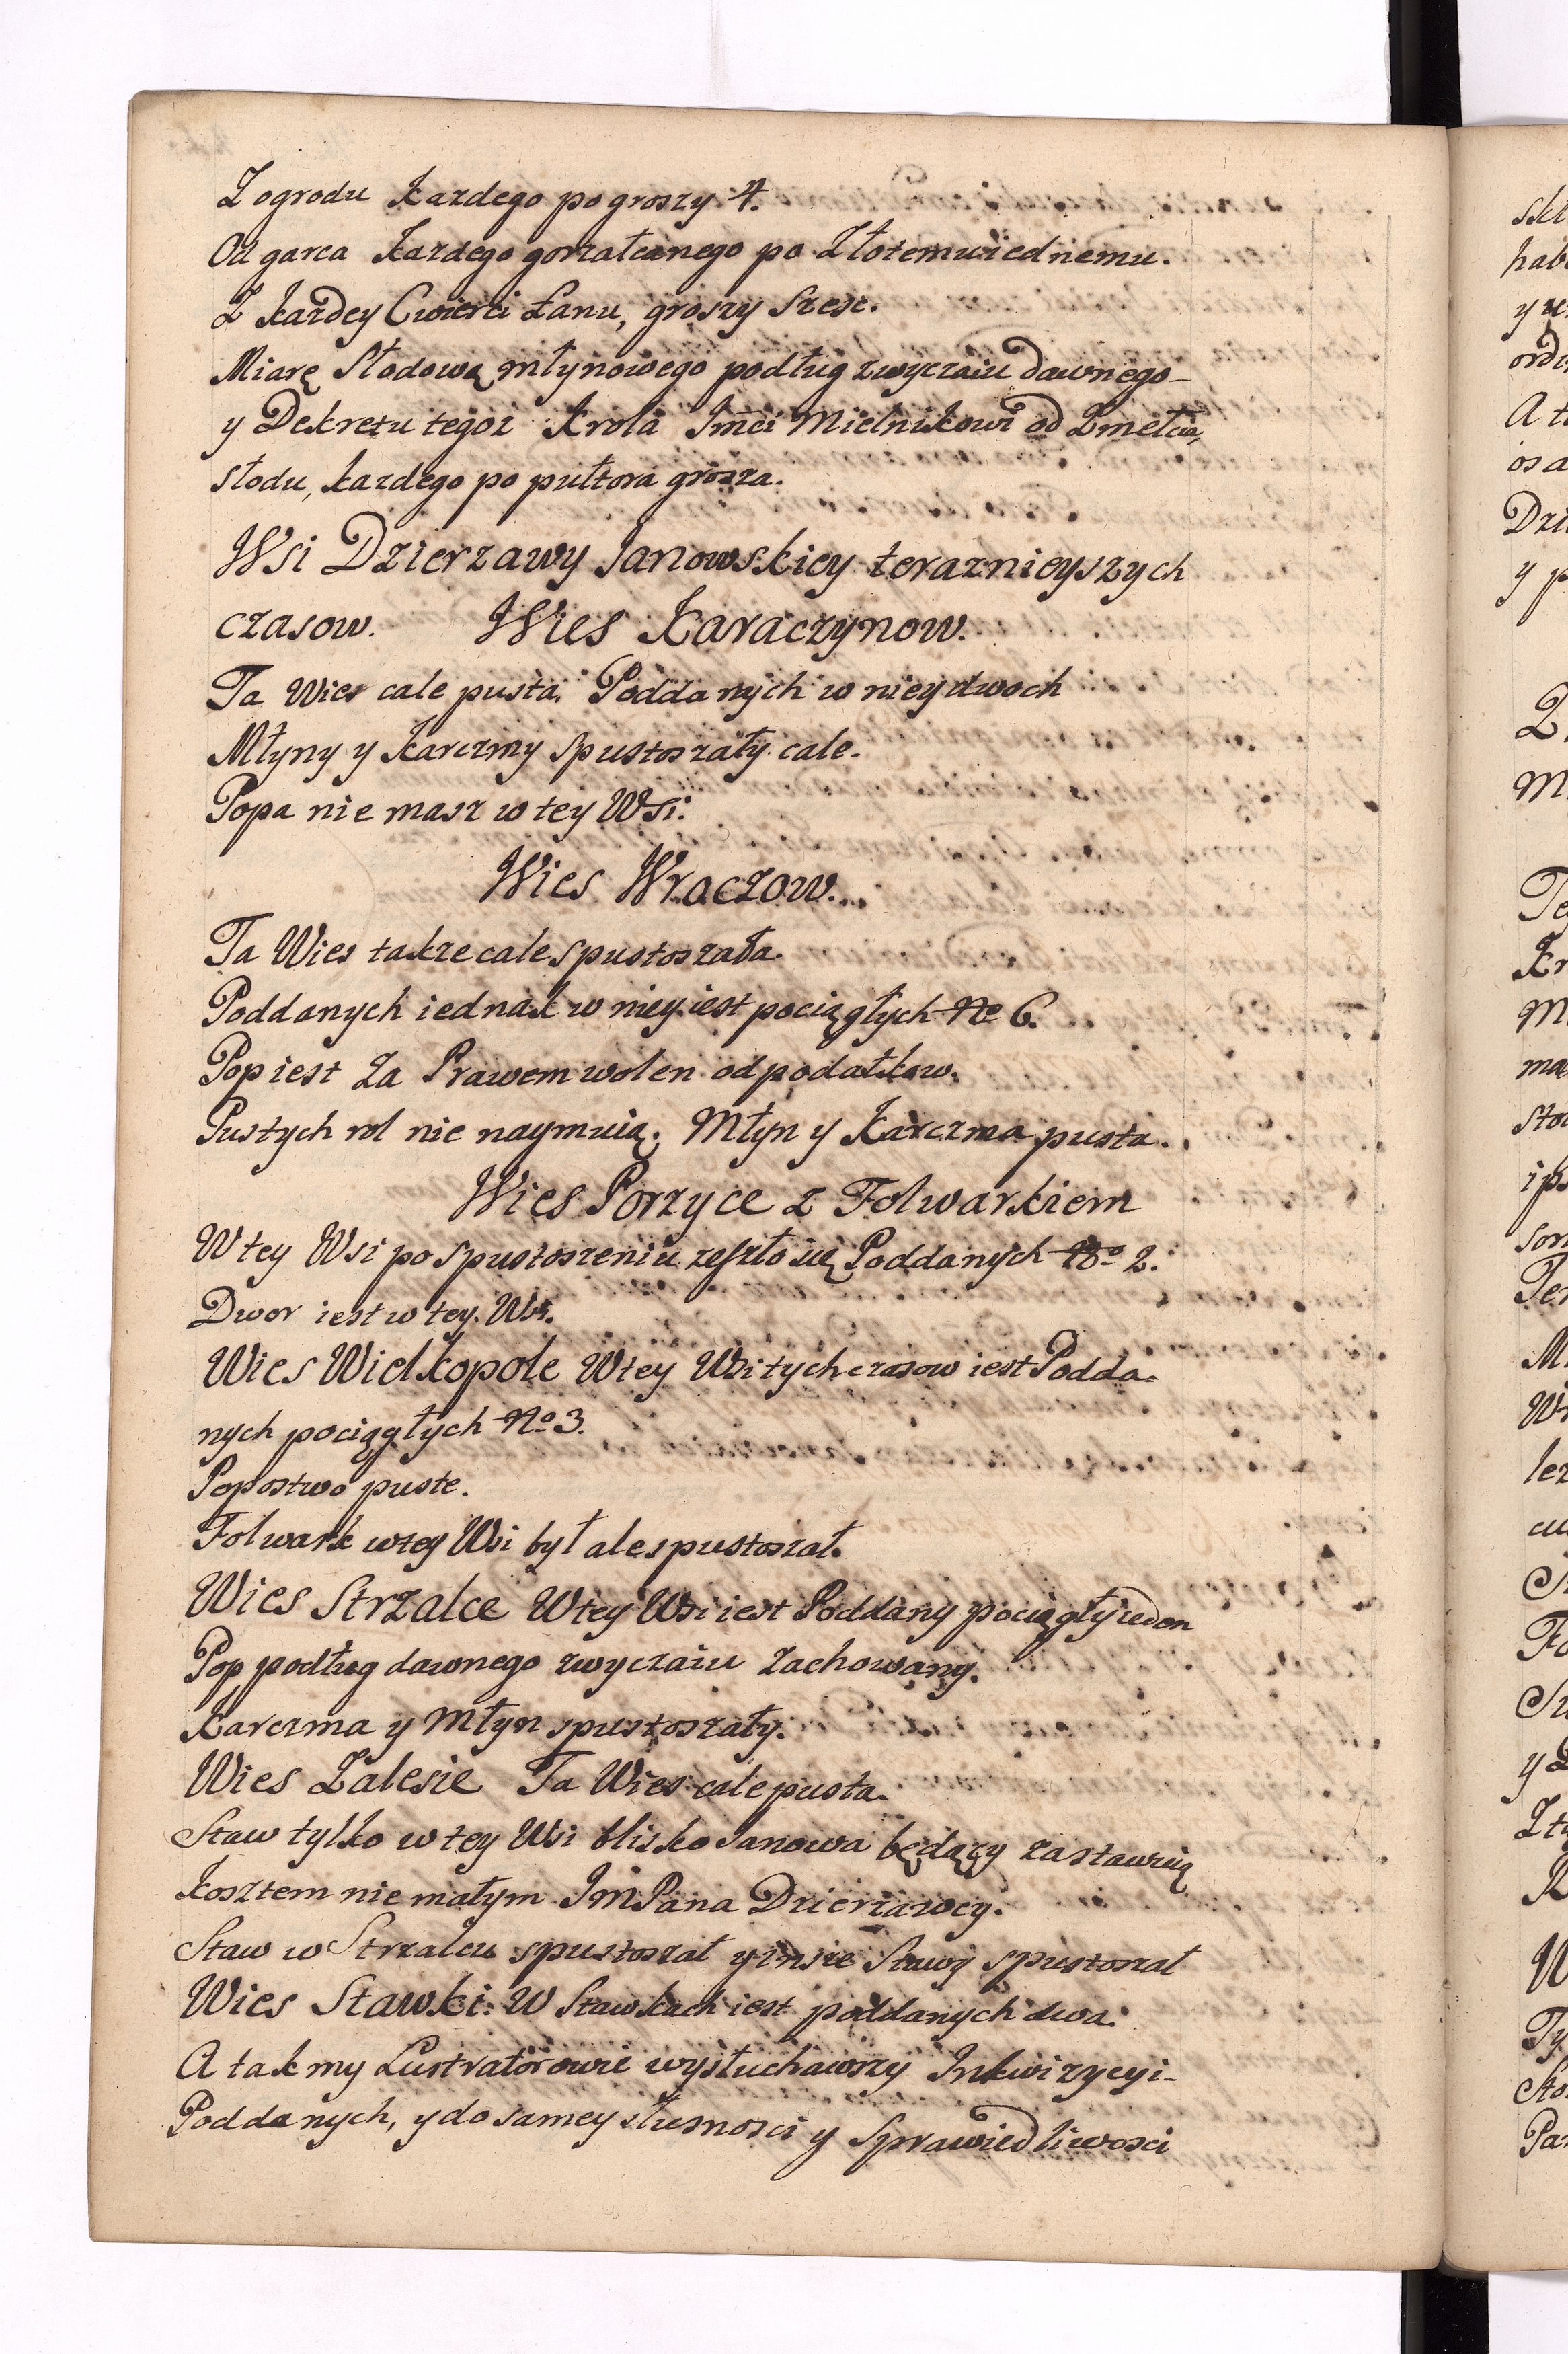 Z ogrodu Kazdego po groszy 4.
Od garca Kazdego gorzałcanego po Złotemu iednemu.
Z Kazdey Cwierci Łanu, groszy Szesc.
Miarę Słodową młynowego podług zwyczaiu dawnego
y Dekretu tegoz Krola Jmci Mielnikowi od Zmełcia
słodu, kazdego po pułtora grosza.
Wsi Dzierzawy Janowskiey teraznieyszych
czasow. Wies Karaczynow.
Ta Wies cale pusta. Poddanych w niey dwoch
Młyny y Karczmy spustoszały cale.
Popa nie masz w tey Wsi.
Wies Wroczow.
Ta Wies takze cale spustoszała.
Poddanych iednak w niey iest pociągłych No 6.
Pop iest za Prawem wolen od podatkow.
Pustych rol nie naymuią. Młyn y Karczma pusta.
Wies Porzyce z Folwarkiem
W tey Wsi po spustoszeniu zeszło się Poddanych No 2.
Dwor iest w tey Wsi.
Wies Wielkopole W tey Wsi tych czasow iest Podda=
nych pociągłych No 3.
Popostwo puste.
Folwark w tey Wsi był ale spustoszał.
Wies Strzalce W tey Wsi iest Poddany pociągły ieden
Pop podług dawnego zwyczaiu zachowany.
Karczma y Młyn spustoszały.
Wies Zalesie Ta Wies cale pusta.
Staw tylko w tey Wsi blisko Janowa będący zastawuią
kosztem nie małym JmPana Dzierzawcy.
Staw w Strzalcu spustoszał y insze Stawy spustoszał
Wies Stawki. W Stawkach iest poddanych dwa.
A tak my Lustratorowie wysłuchawszy Inkwizycyi
Poddanych, y do samey słusnosci y Sprawiedliwosci